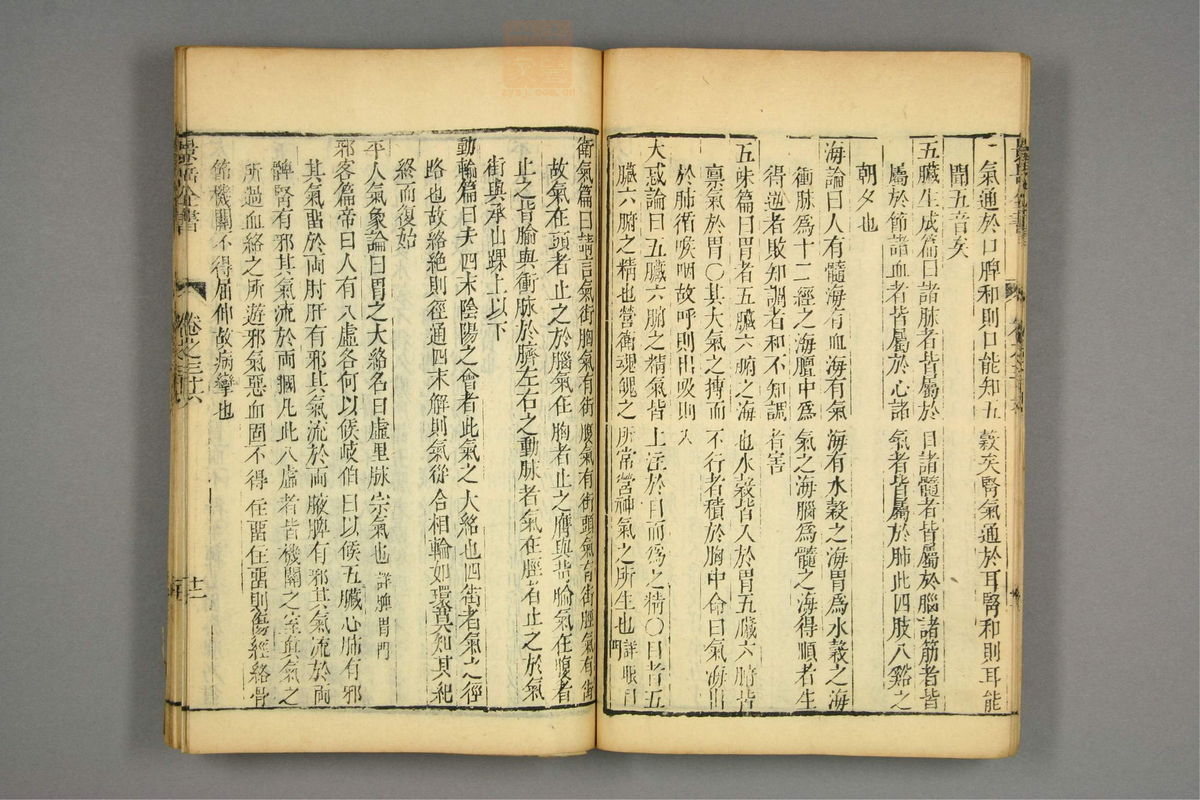 氣通於口脾和則口能知五穀矣腎氣通於耳腎和則耳能
聞五音矣
五臟生成篇曰諸脉者皆屬於目諸髓者皆屬於腦諸筋者皆
屬於節諸血者皆屬於心諸氣者皆屬於肺此四肢八谿之
朝夕也
海論曰人有髓海有血海有氣海有水穀之海胃爲水穀之海
衝脉爲十二經之海膻中爲氣之海腦爲髓之海得順者生
得逆者敗知調者和不知調者害
五味篇曰胃者五臟六腑之海也水穀皆入於胃五臟六腑皆
禀氣於胃〇其大氣之摶而不行者積於胸中命曰氣海出
於肺循喉咽故呼則出吸則入
大惑論曰五臟六腑之精氣皆上注於目而爲之精〇目者五
臟六腑之精也營衛魂魄之所常營神氣之所生也詳眼目門
衛氣篇曰請言氣街胸氣有街腹氣有街頭氣有街脛氣有街
故氣在頭者止之於腦氣在胸者止之膺與背腧氣在腹者
止之背腧與衝脉於臍左右之動脉者氣在脛者止之於氣
街與承山踝上以下
動輸篇曰夫四末陰陽之會者此氣之大絡也四街者氣之徑
路也故絡絶則徑通四末解則氣從合相輸如環莫知其紀
終而復始
平人氣象論曰胃之大絡名曰虛里脉宗氣也詳脾胃門
邪客篇帝曰人有八虛各何以候岐伯曰以候五臟心肺有邪
其氣留於両肘肝有邪其氣流於両腋脾有邪其氣流於両
髀腎有邪其氣流於両膕凡此八虛者皆機關之室眞氣之
所過血絡之所遊邪氣惡血固不得住畱住畱則傷經絡骨
節機關不得屈伸故病攣也
卷之三十六
廿一